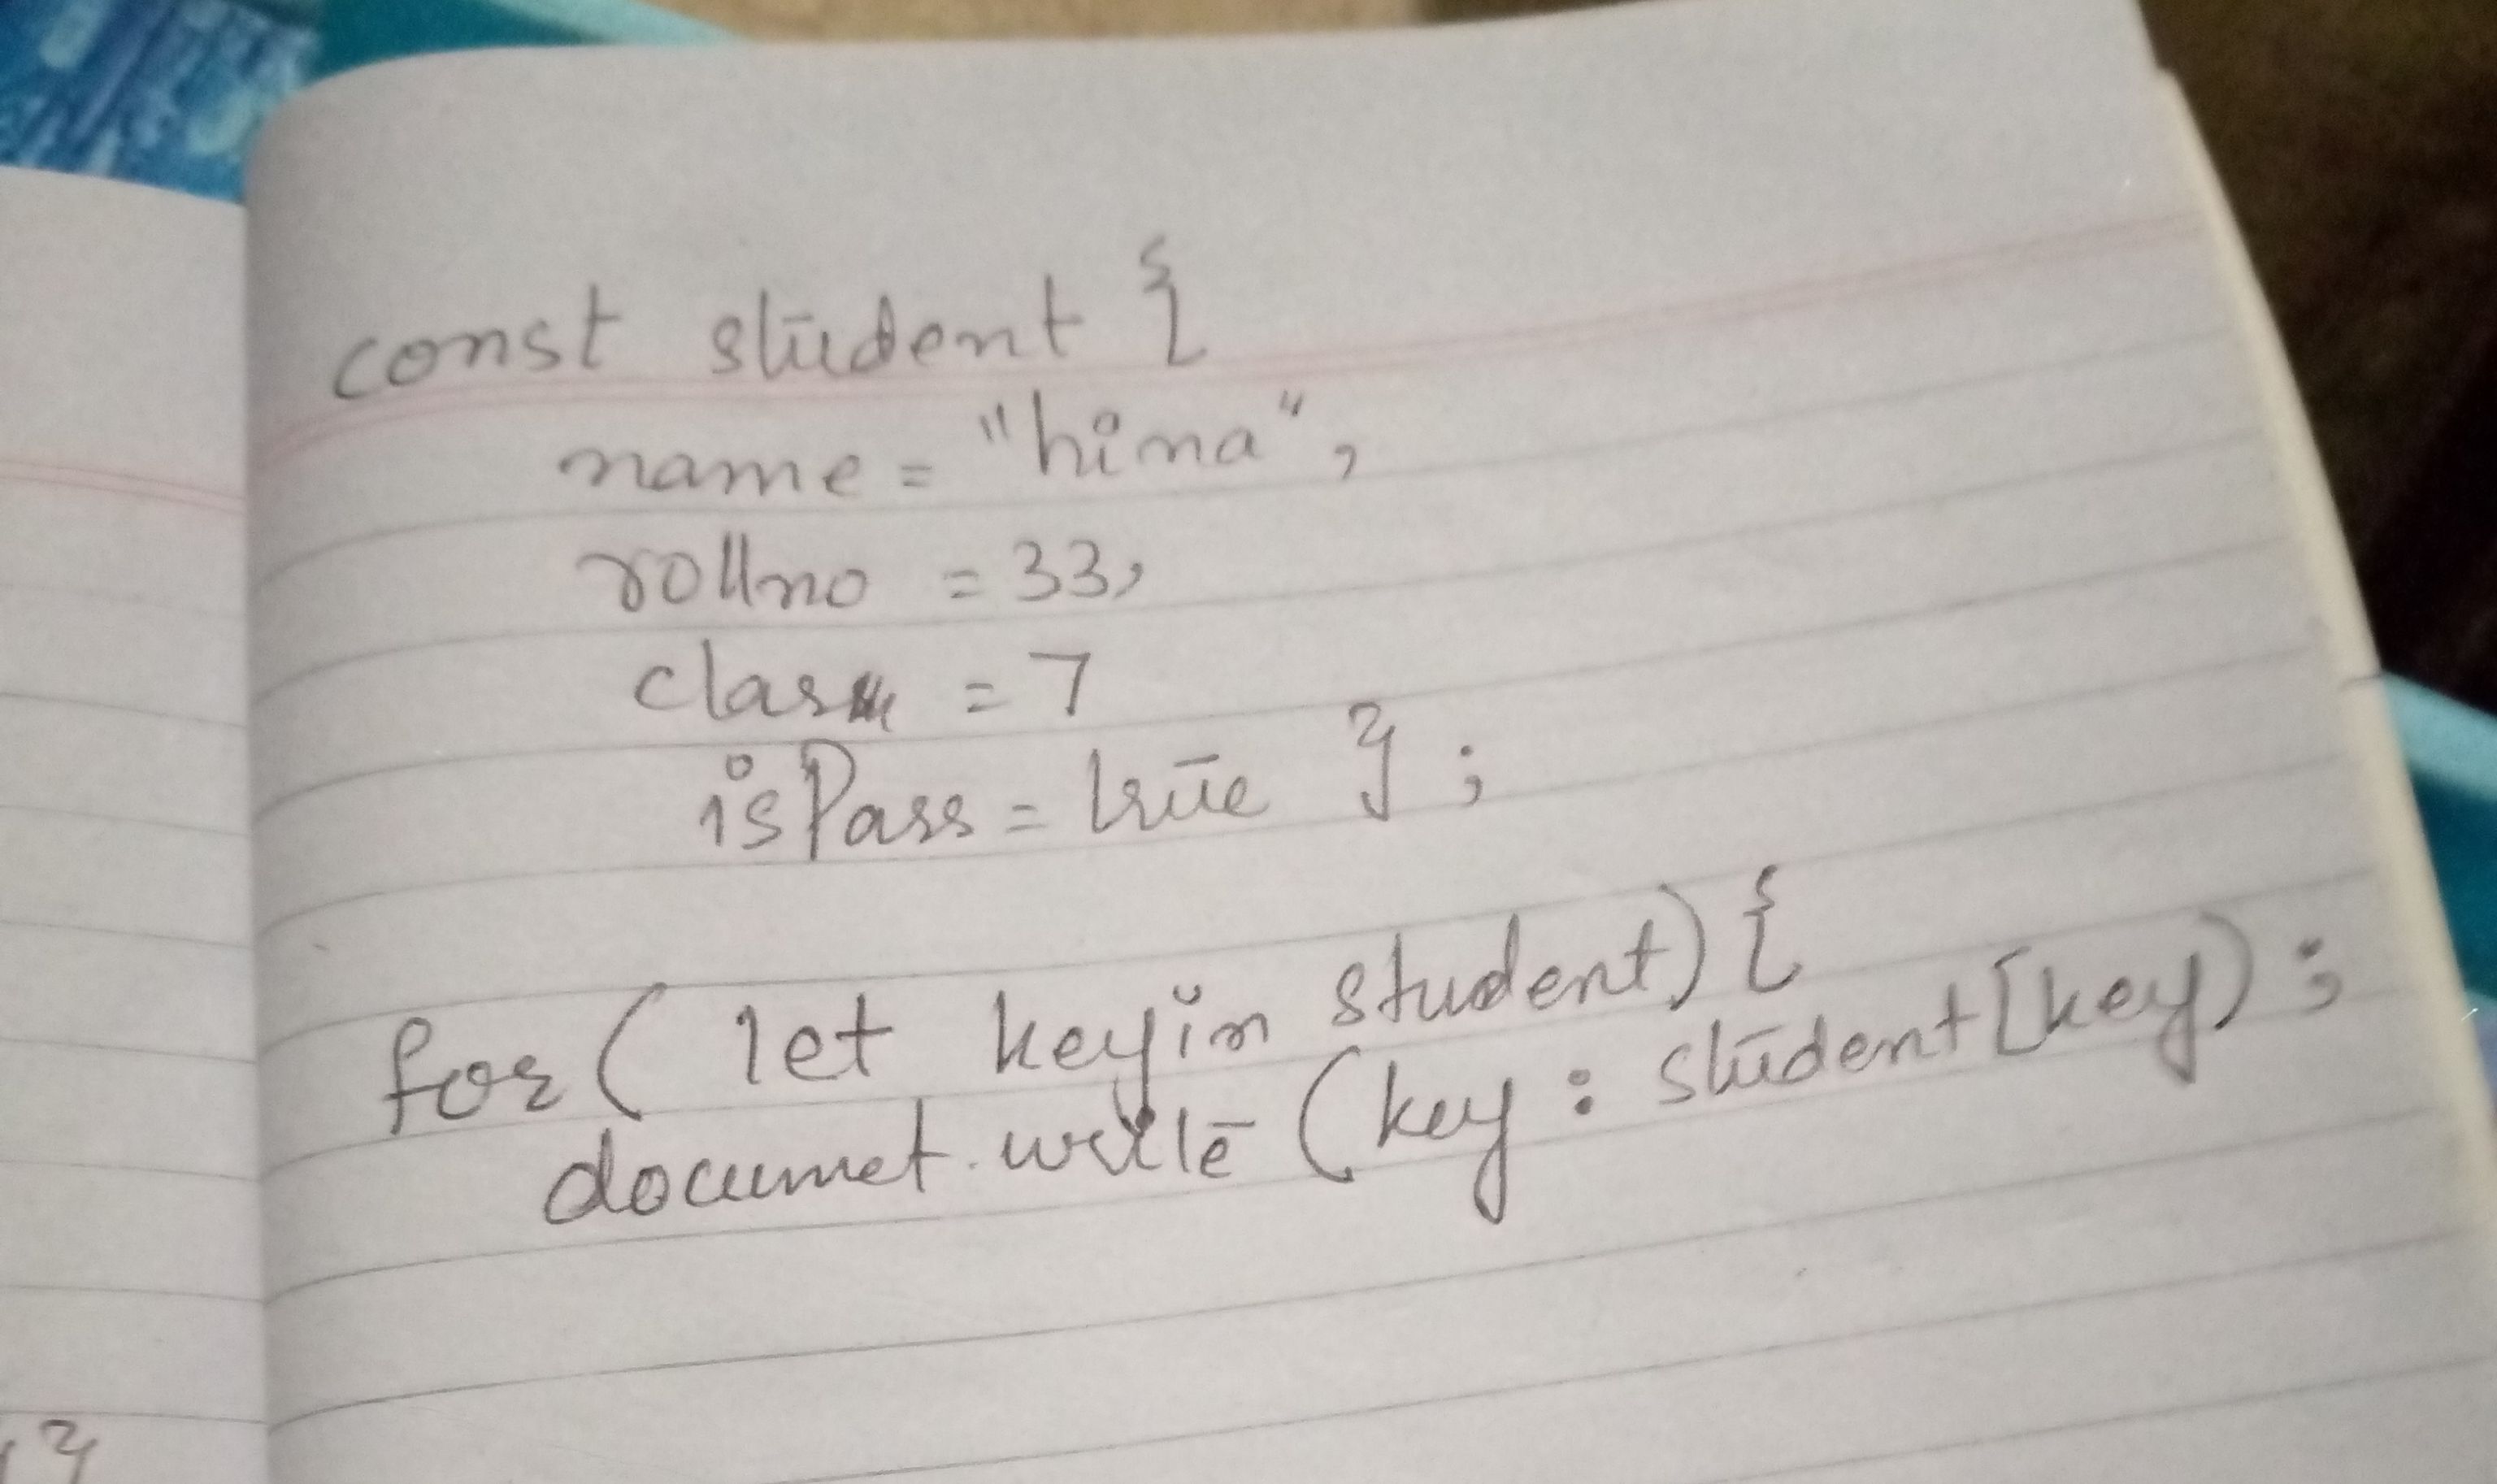 const student {
name = "hima",
rollno = 33,
class = 7
isPass = true } ;
for ( let key in student) {
documet.write (key : student[key) ;
}